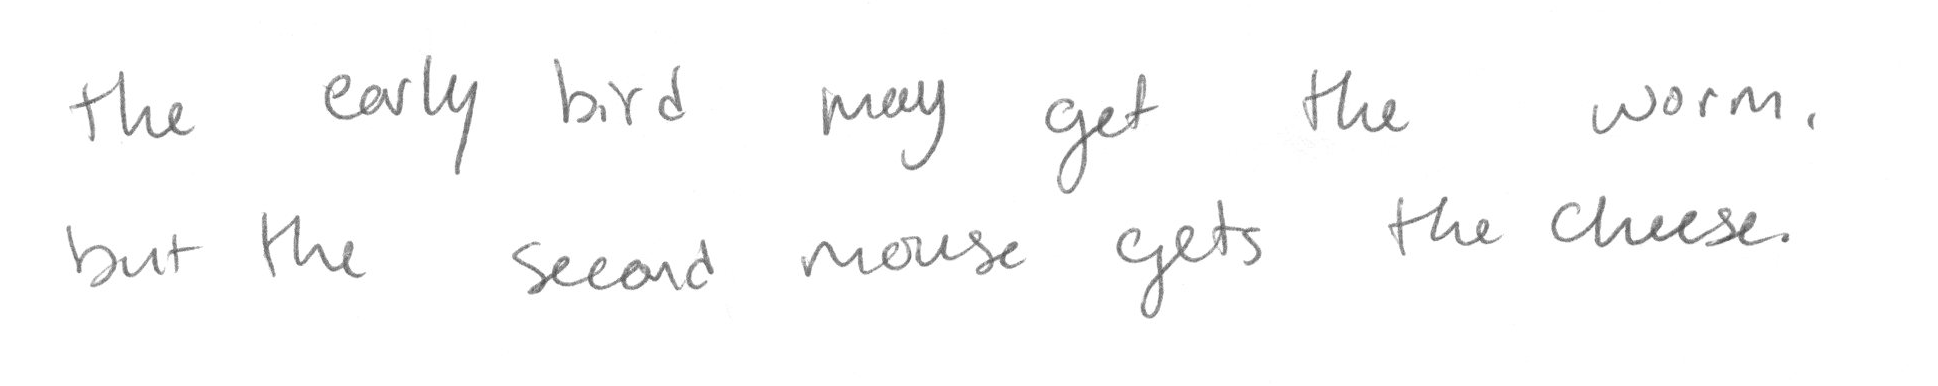 the early bird may get the worm.
but the second mouse gets the cheese.